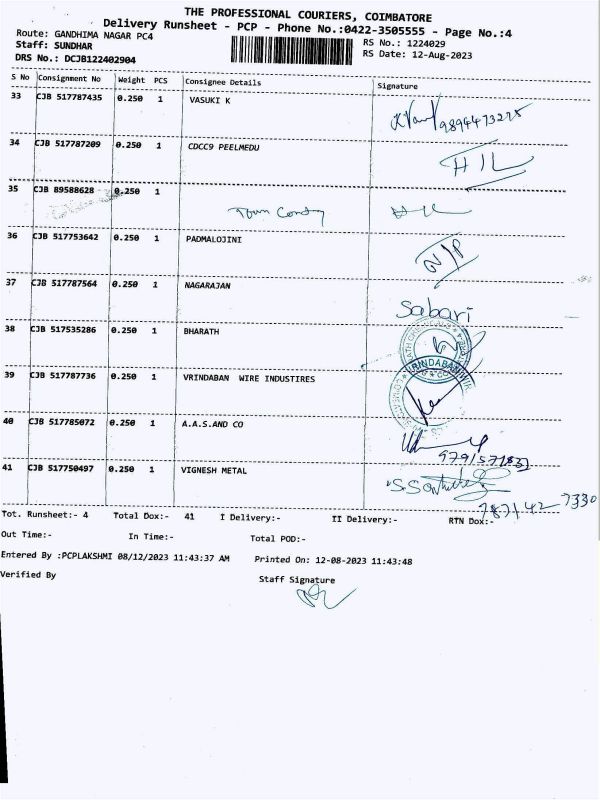 THE PROFESSIONAL COURIERS, COIMBATORE
Delivery Runsheet - PCP - Phone No.:0422-3505555 - Page No.:4
Route: GANDHIMA NAGAR PC4
RS No.: 1224029
Staff: SUNDHAR
RS Date: 12-Aug-2023
DRS No.: DCJB122402904
S No Consignment No Weight PCS Consignee Details Signature
33 CJB 517787435 0.250 1 VASUKI K
9894473275
34 CJB 517787209 0.250 1 CDCC9 PEELMEDU
35 CJB 89588628 0.250 1
36 CJB 517753642 0.250 1 PADMALOJINI
37 CJB 517787564 0.250 1 NAGARAJAN
Sabari
38 CJB 517535286 0.250 1 BHARATH
39 CJB 517787736 0.250 1 VRINDABAN WIRE INDUSTIRES
40 CJB 517785072 0.250 1 A.A.S.AND CO
41 CJB 517750497 0.250 1 VIGNESH METAL
Tot. Runsheet:- 4 Total Dox:- 41 I Delivery:- II Delivery:- RTN Dox:-
Out Time:- In Time:- Total POD:-
Entered By :PCPLAKSHMI 08/12/2023 11:43:37 AM Printed On: 12-08-2023 11:43:48
Verified By Staff Signature